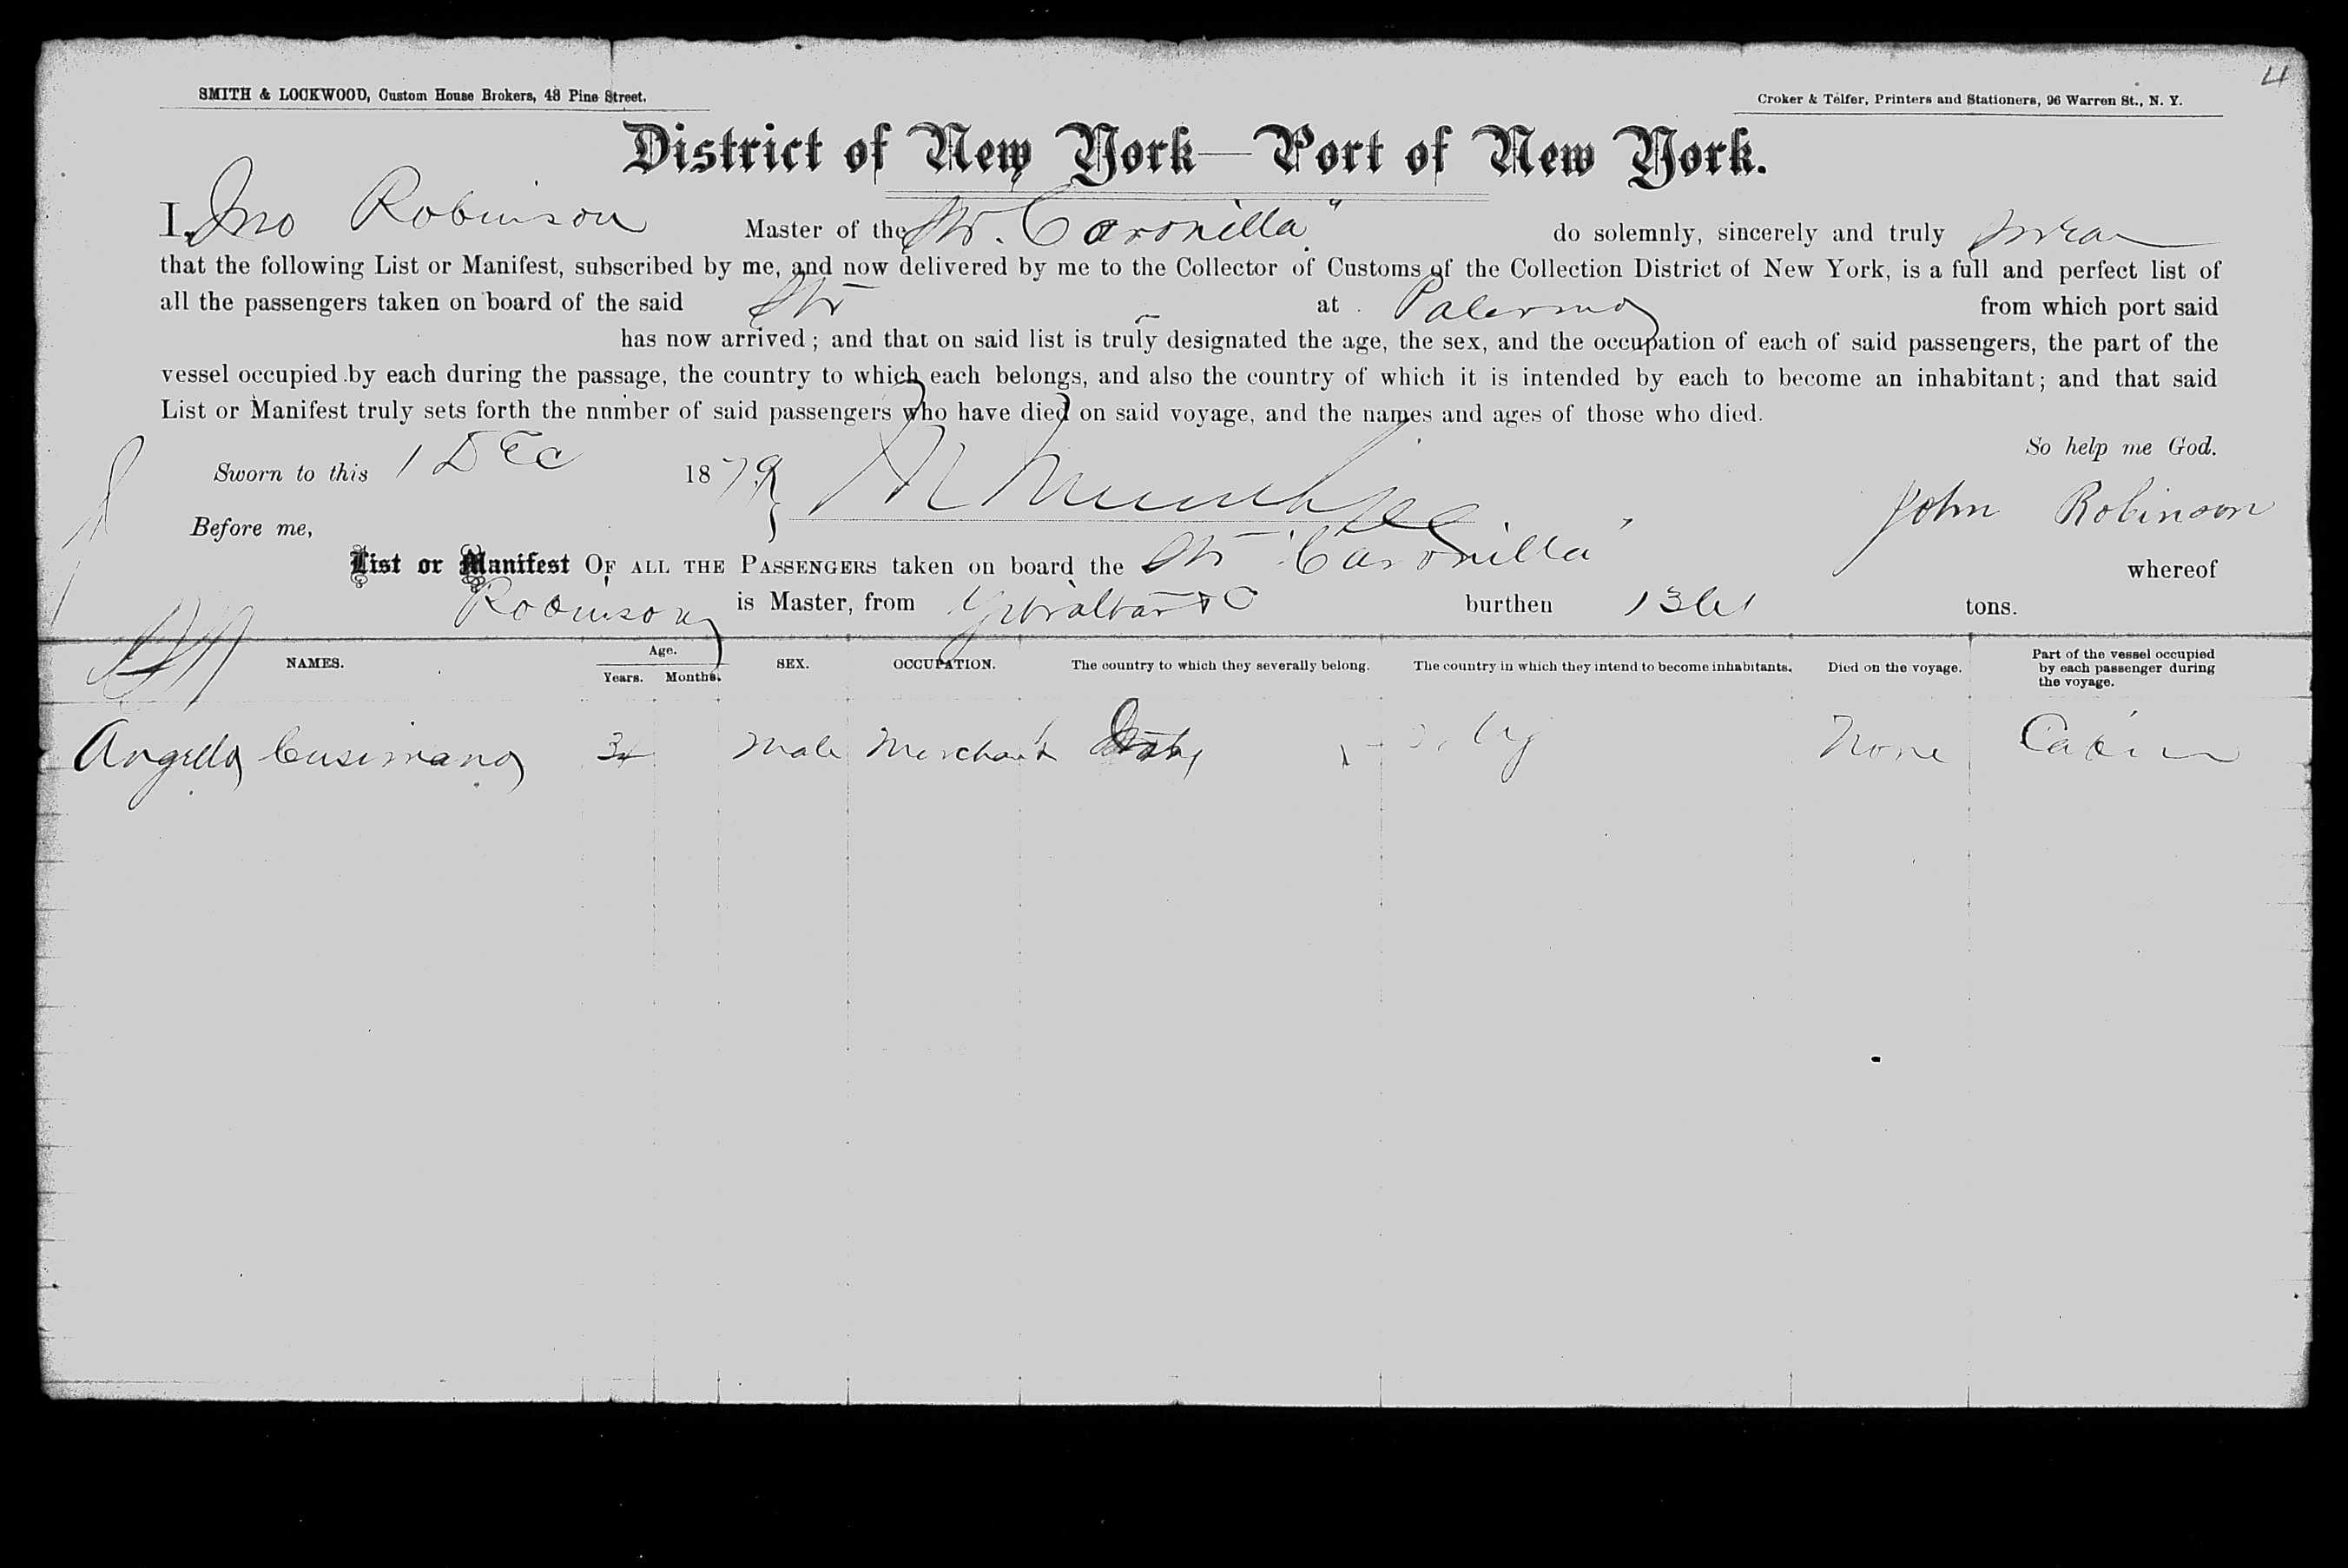 4
SMITH & LOCKWOOD, Custom House Brokers, 48 Pine Street.
Croker & Telfer, Printers and Stationers, 96 Warren St., N. Y.
District of New York—Port of New York.
I, Jno Robinson Master of the Str. "Caronilla" do solemnly, sincerely and truly swear
that the following List or Manifest, subscribed by me, and now delivered by me to the Collector of Customs of the Collection District of New York, is a full and perfect list of
all the passengers taken on board of the said Str at Palermo from which port said
has now arrived; and that on said list is truly designated the age, the sex, and the occupation of each of said passengers, the part of the
vessel occupied by each during the passage, the country to which each belongs, and also the country of which it is intended by each to become an inhabitant; and that said
List or Manifest truly sets forth the nnmber of said passengers who have died on said voyage, and the names and ages of those who died.
So help me God.
Sworn to this 1 Dec 1879
John Robinson
Before me,
List or Manifest OF ALL THE PASSENGERS taken on board the Str "Caronilla" whereof
Robinson is Master, from Gibraltar & C burthen 1361 tons.
NAMES. Age. Years. Months. SEX. OCCUPATION. The country to which they severally belong. The country in which they intend to become inhabitants. Died on the voyage. Part of the vessel occupied by each passenger during the voyage.
Angello Cusimano Male Merchant Italy None Cabin